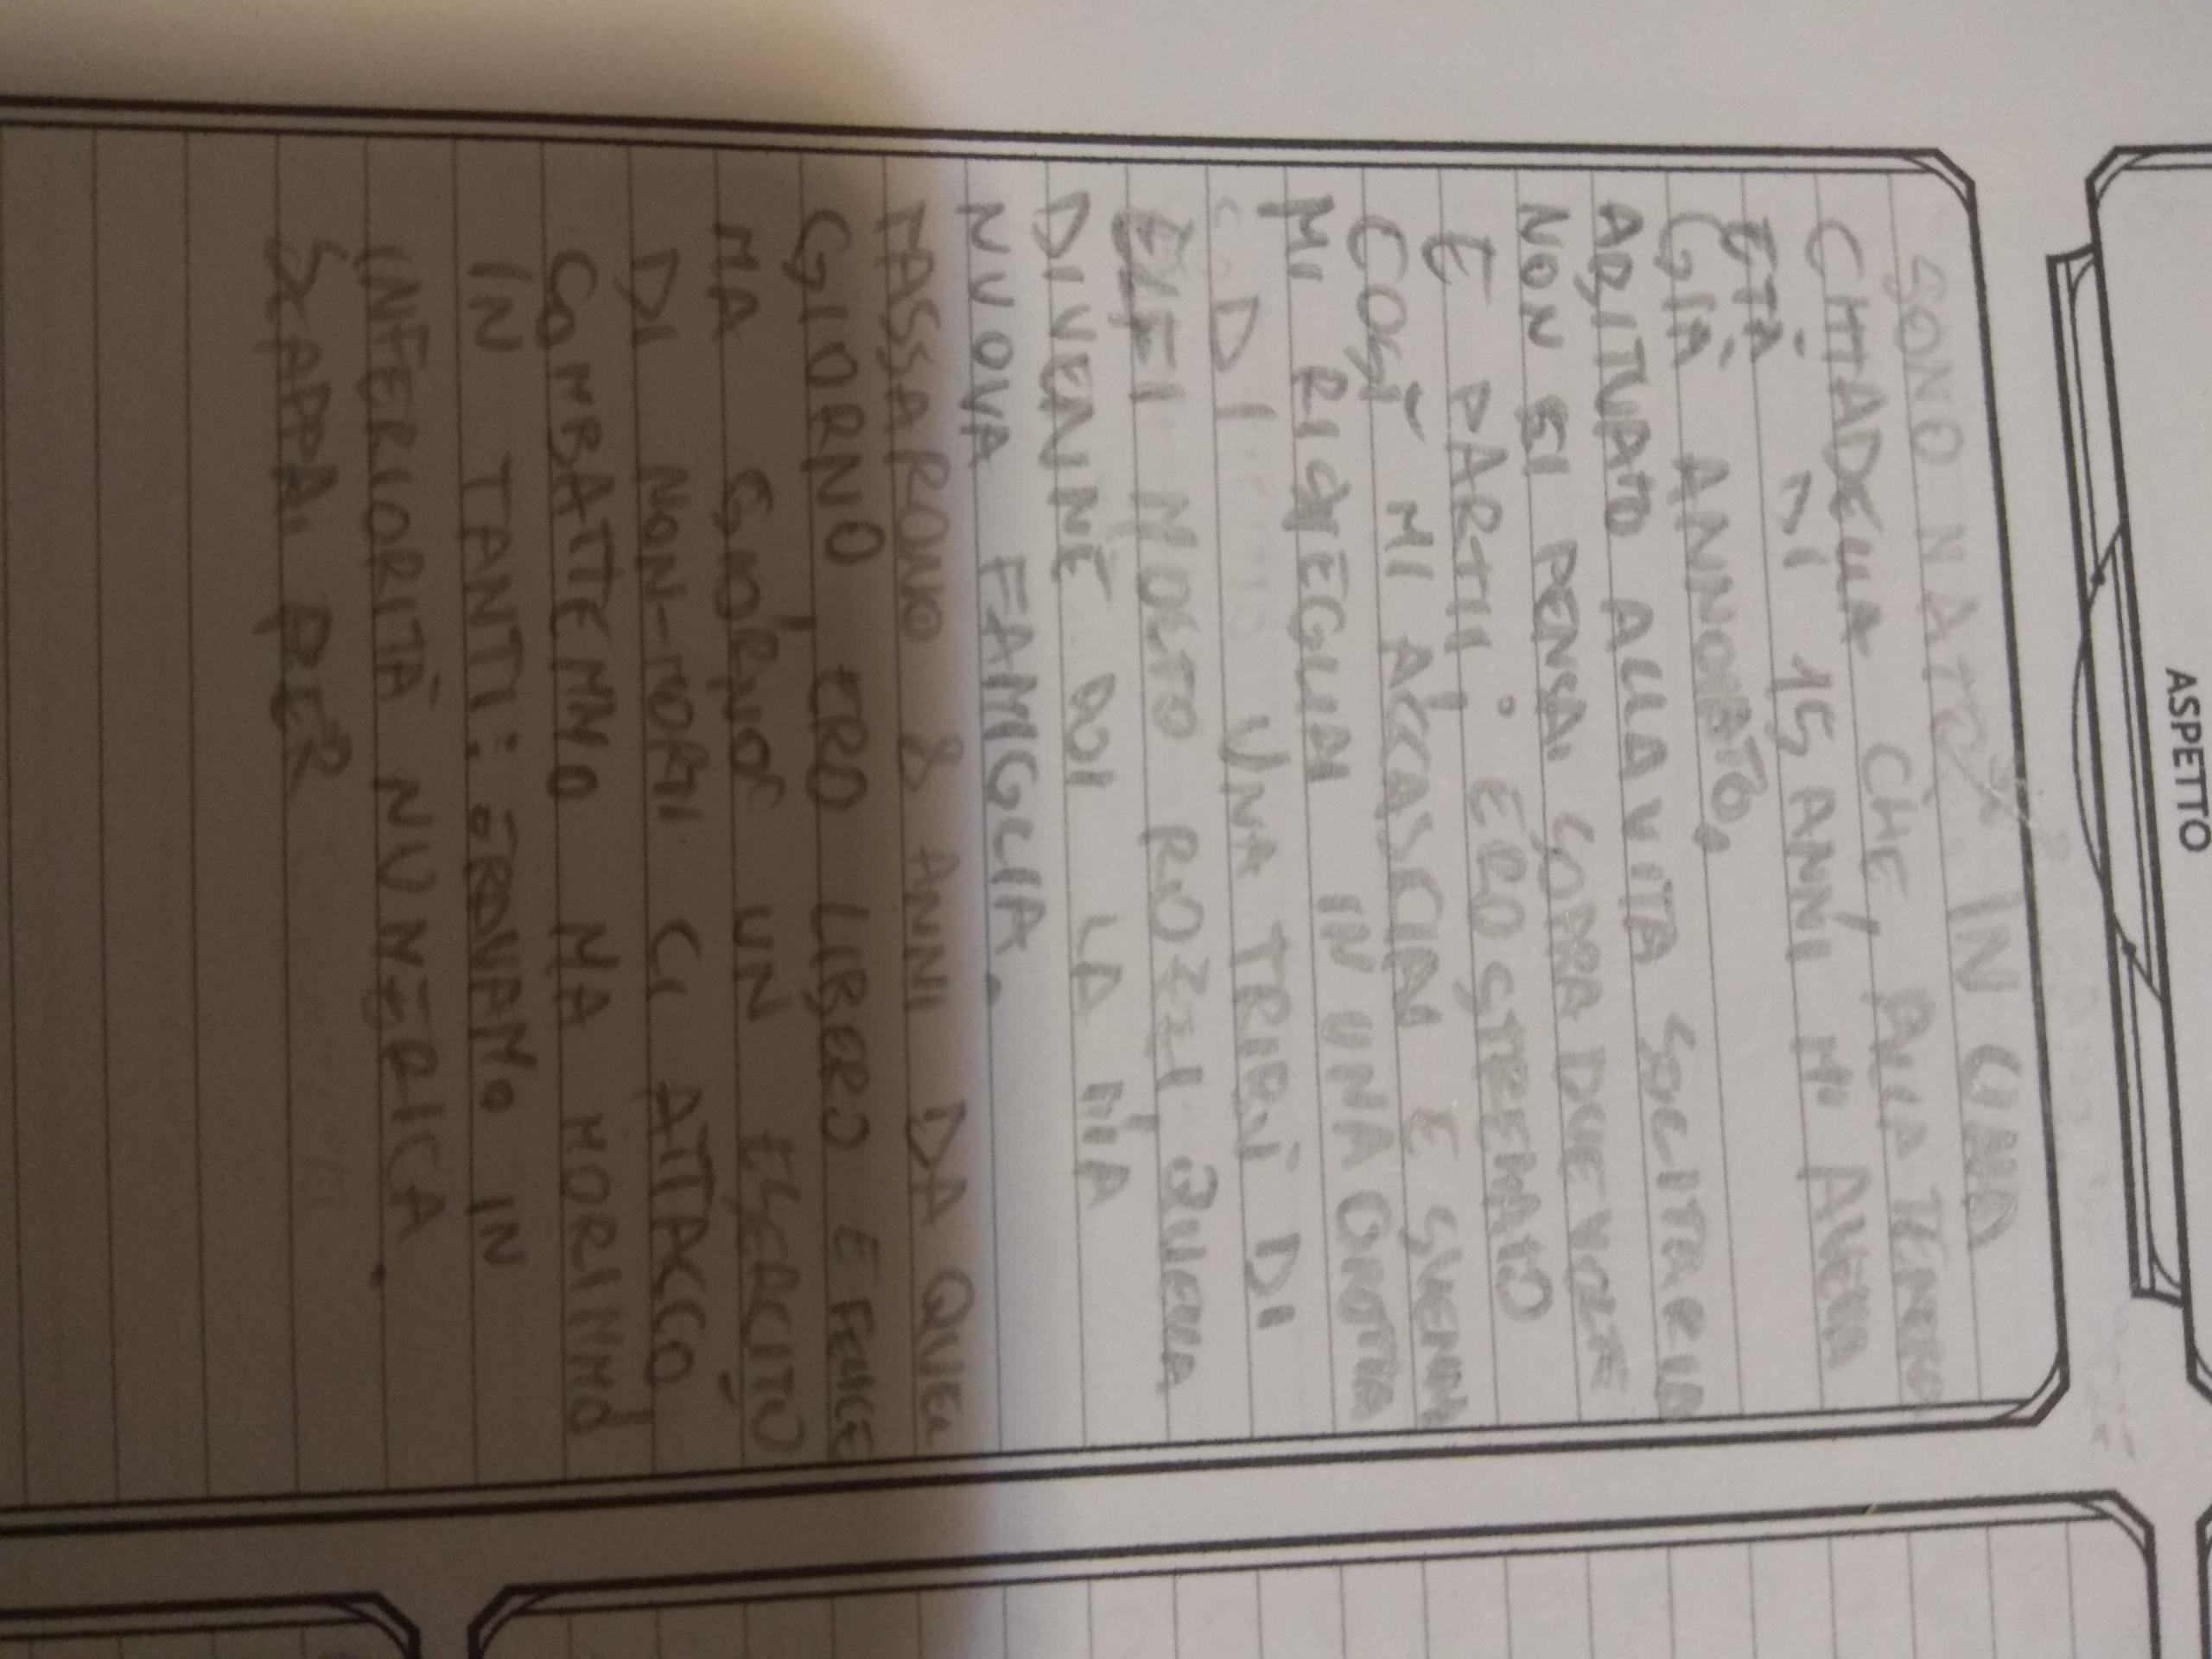 ASPETTO
SONO NATO IN UNA
CITTADELLA CHE, ALLA TENERA
ETÀ DI 15 ANNI MI AVEVA
GIÀ ANNOIATO.
ABITUATO ALLA VITA SOLITARIA
NON CI PENSAI SOPRA DUE VOLTE
E PARTII. ERO STREMATO
COSÌ MI ACCASCIAI E SVENNI
MI RISVEGLIAI IN UNA GROTTA
DI UNA TRIBÙ DI
ELFI MOLTO ROZZI QUELLA
DIVENNE POI LA MIA
NUOVA FAMIGLIA.
PASSARONO 8 ANNI DA QUEL
GIORNO, ERO LIBERO E FELICE
MA UN ESERCITO
DI NON-MORTI CI ATTACCÒ
COMBATTEMMO MA MORIMMO
IN TANTI: ERAVAMO IN
INFERIORITÀ NUMERICA.
SCAPPAI PER